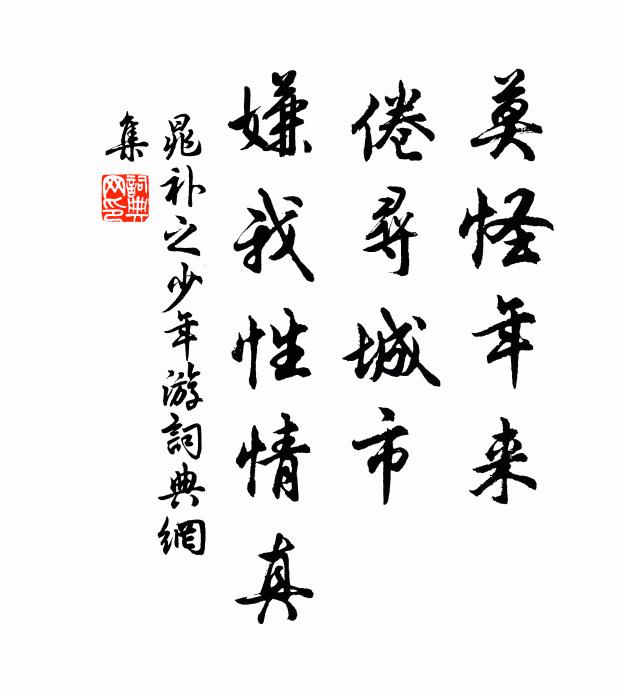 莫怪年来
倦尋城市
嫌我性情真
晁补之少年游詞典網
集
詞典网印